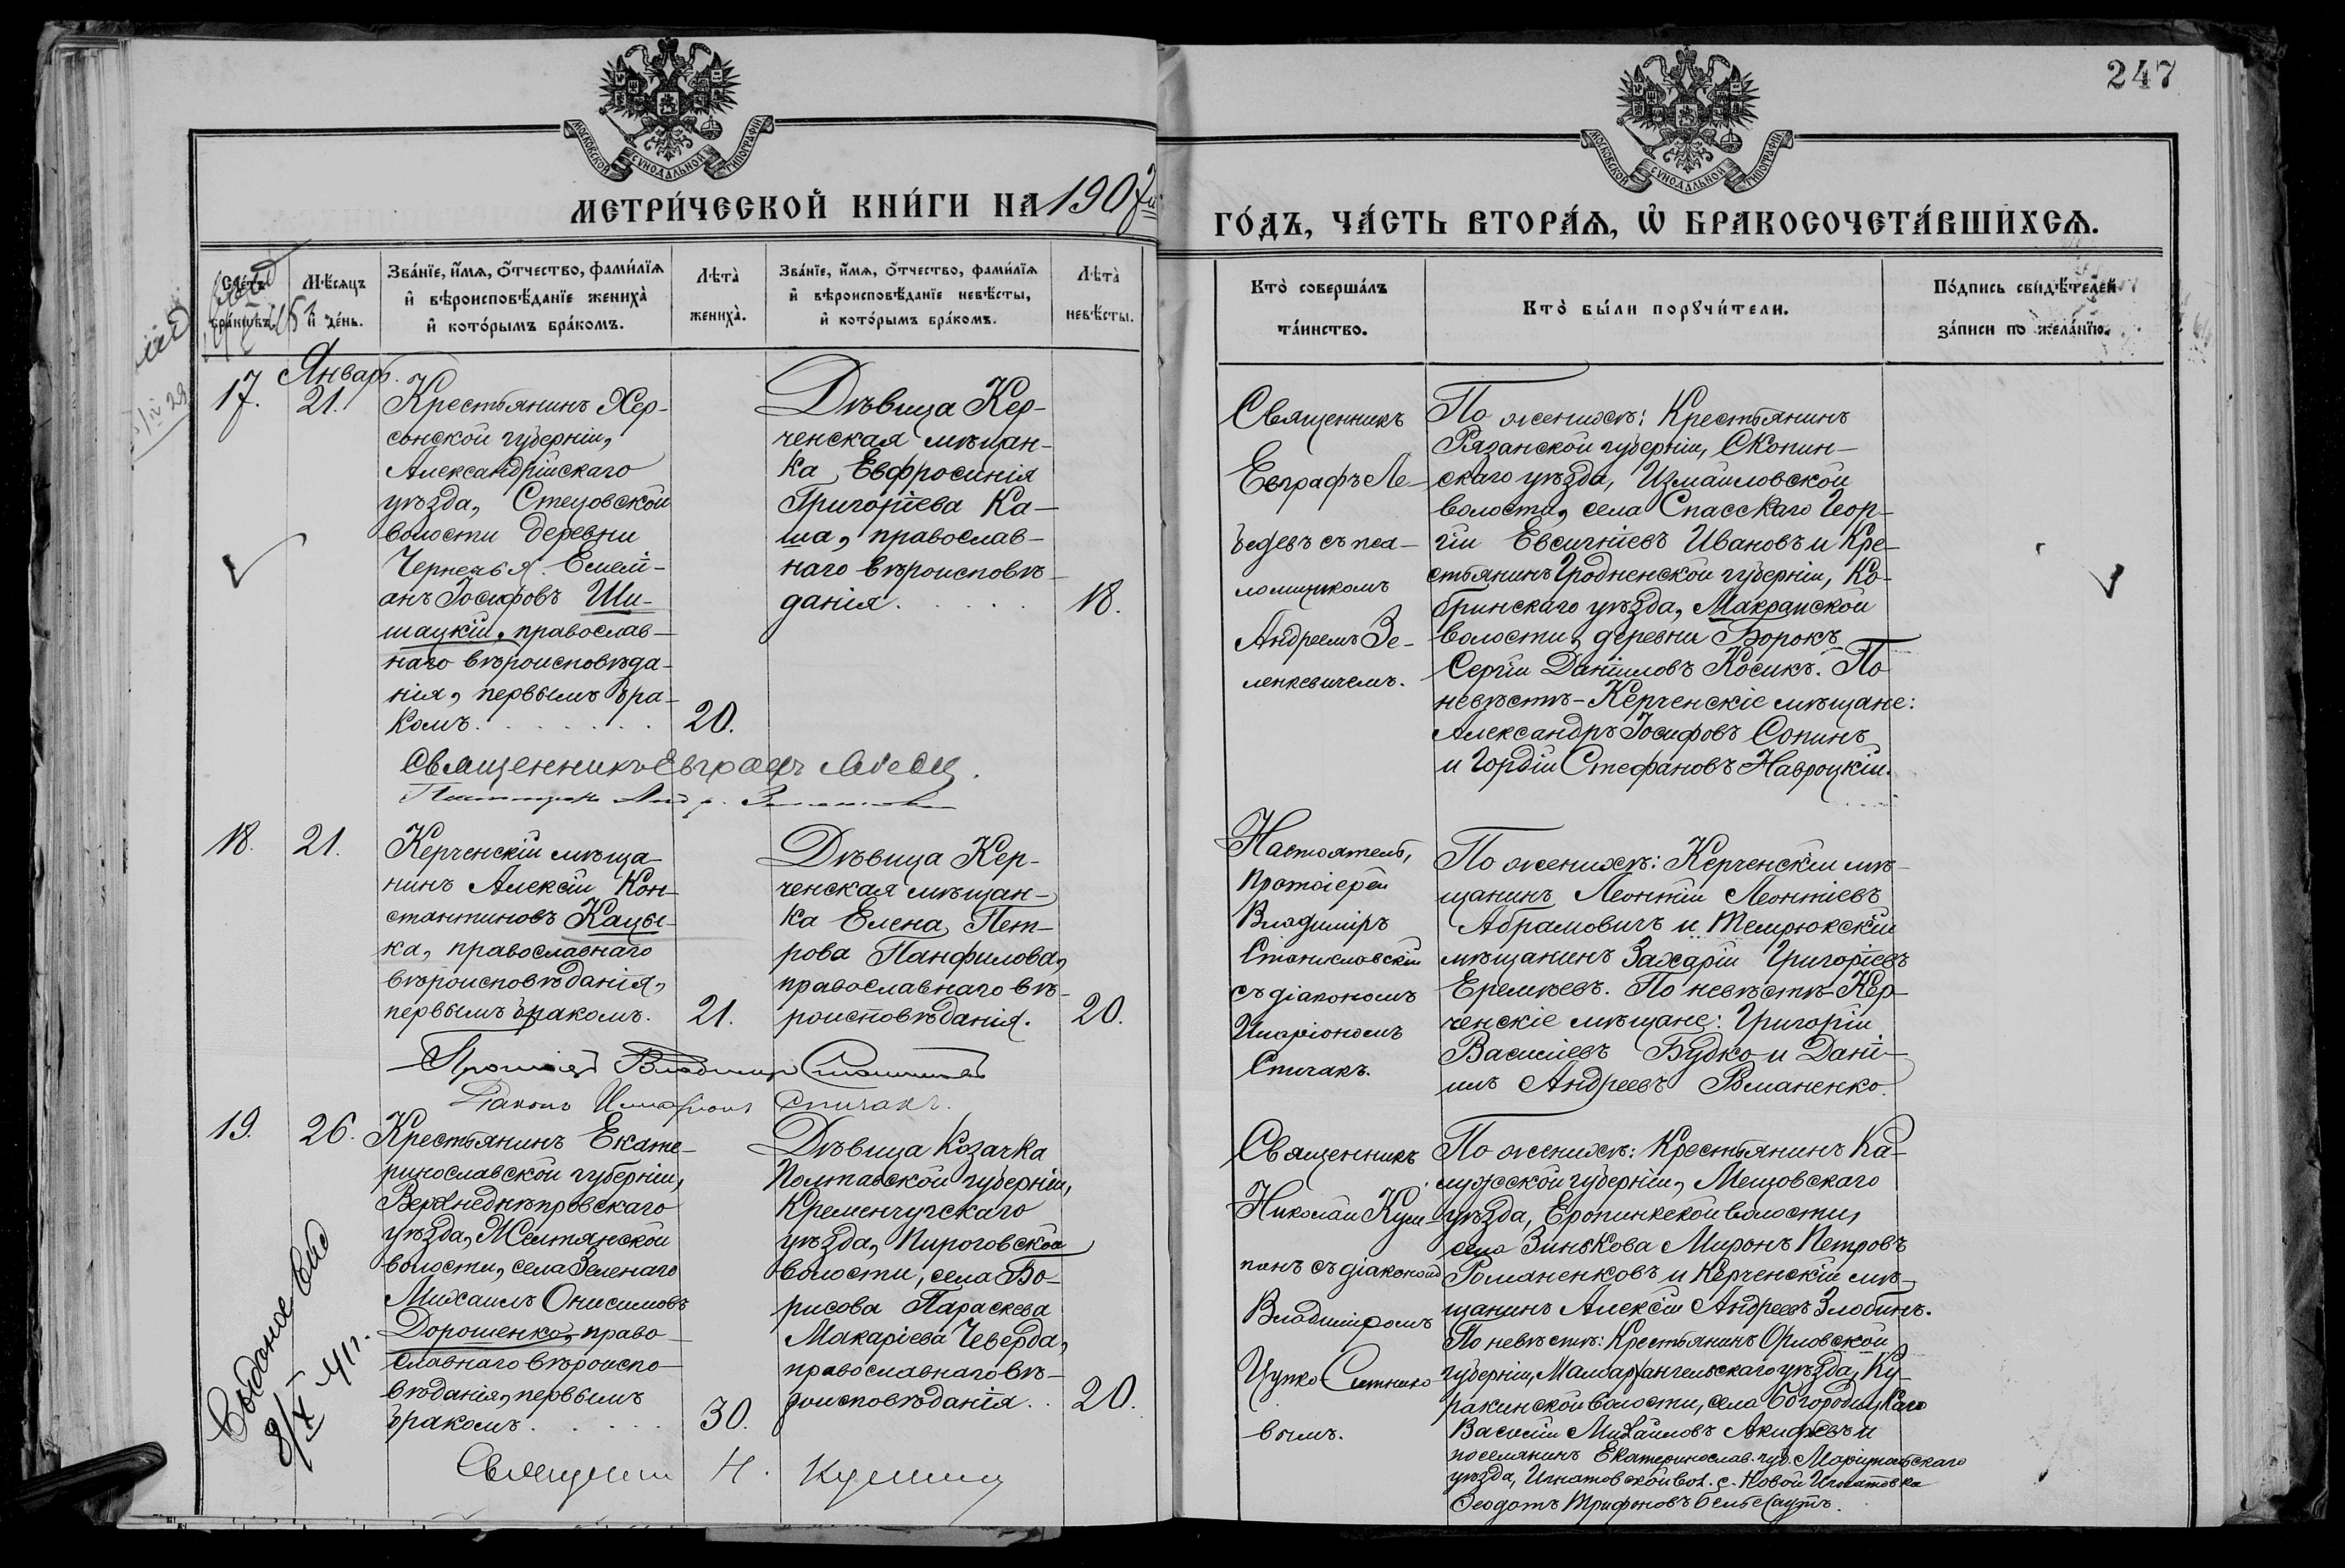 247
МОСКОВСКОЙ СѴНОДАЛЬНОЙ ТИПОГРАФІИ
МОСКОВСКОЙ СѴНОДАЛЬНОЙ ТИПОГРАФІИ
МЕТРИ́ЧЕСКОЙ КНИ́ГИ НА 1907й
ГО́ДЪ, ЧА́СТЬ ВТОРА́Ѧ, Ѽ БРАКОСОЧЕТА́ВШИХСѦ.
Сче́тъ бра́кѡвъ.
Мѣ́сѧцъ
и҆ де́нь.
Зва́нїе, и҆́мѧ, ѻ҆́тчество, фами́лїѧ
и҆ вѣроисповѣ́данїе жениха̀
и҆ кото́рымъ бра́комъ.
Лѣта̀
жениха̀.
Зва́нїе, и҆́мѧ, ѻ҆́тчество, фами́лїѧ
и҆ вѣроисповѣ́данїе невѣ́сты,
и҆ кото́рымъ бра́комъ.
Лѣта̀
невѣ́сты.
Кто̀ соверша́лъ
та́инство.
Кто̀ бы́ли порꙋчи́тели.
По́дпись свидѣ́телей
за́писи по жела́нїю.
Январ.
17.
21.
Крестьянинъ Хер-
сонской губерніи,
Александрійскаго
уѣзда, Стецовской
волости деревни
Чернеавя Емелі-
анъ Іосифовъ Ши-
шацкій, православ-
наго вѣроисповѣда-
нія, первымъ бра-
комъ.
20.
Дѣвица Кер-
ченская мѣщан-
ка Евфросинія
Григоріева Ка-
ша, православ-
наго вѣроисповѣ-
данія.
18.
Священникъ
Евграфъ Ле-
бедевъ съ пса-
ломщикомъ
Андреемъ Зе-
ленкевичемъ.
По женихѣ: Крестьянинъ
Рязанской губерніи, Скопин-
скаго уѣзда, Измаиловской
волости, села Спасскаго Геор-
гій Евсигніевъ Ивановъ и Кре-
стьянинъ Гродненской губерніи, Ко-
бринскаго уѣзда, Макранской
волости, деревни Борокъ
Сергій Даніиловъ Косикъ. По
невѣстѣ - Керченскіе мѣщане:
Александръ Іосифовъ Сопинъ
и Гордій Стефановъ Навроцкій.
Священникъ Евграфъ Лебед.
18.
21.
Керченскій мѣща-
нинъ Алексій Кон-
стантиновъ Кацы-
ка, православнаго
вѣроисповѣданія,
первымъ бракомъ.
21.
Дѣвица Кер-
ченская мѣщан-
ка Елена Пет-
рова Панфилова,
православнаго вѣ-
роисповѣданія.
20.
Настоятель,
Протоіерей
Владиміръ
Станиславскій
съ діакономъ
Иларіономъ
Спичакъ.
По женихѣ: Керченскій мѣ-
щанинъ Леонтій Леонтіевъ
Абрамовичъ и Темрюкскій
мѣщанинъ Захарій Григоріевъ
Еремѣевъ. По невѣстѣ - Кер-
ченскіе мѣщане: Григорій
Василіевъ Будко и Дані-
илъ Андреевъ Романенко.
Діаконъ Иларіонъ Спичакъ.
19.
26.
Крестьянинъ Екате-
ринославской губерніи,
Верхнеднѣпровскаго
уѣзда, Желтянской
волости, села Зеленаго
Михаилъ Онисимовъ
Дорошенко, право-
славнаго вѣроиспо-
вѣданія, первымъ
бракомъ.
30.
Дѣвица Козачка
Полтавской губерніи,
Кременчугскаго
уѣзда, Пироговской
волости, села Бо-
рисова Параскева
Макаріева Чеверда,
православнаго вѣ-
роисповѣданія.
20.
Священникъ
Николай Кум-
панъ съ діакономъ
Владиміромъ
Цупко Ситнико-
вымъ.
По женихѣ: Крестьянинъ Ка-
лужской губерніи, Мещовскаго
уѣзда, Еропинкской волости,
села Зинькова Миронъ Петровъ
Романенковъ и Керченскій мѣ-
щанинъ Алексій Андреевъ Злобинъ.
По невѣстѣ: Крестьянинъ Орловской
губерніи, Малоархангельскаго уѣзда, Ку-
ракинской волости, села Богородицкаго
Василій Михаиловъ Акифьевъ и
поселянинъ Екатеринослав. губ. Маріупольскаго
уѣзда, Игнатовской вол. с. Новой Игнатовка
Ѳеодотъ Трифоновъ
Священник Н. Кумпан
8/X 41г.